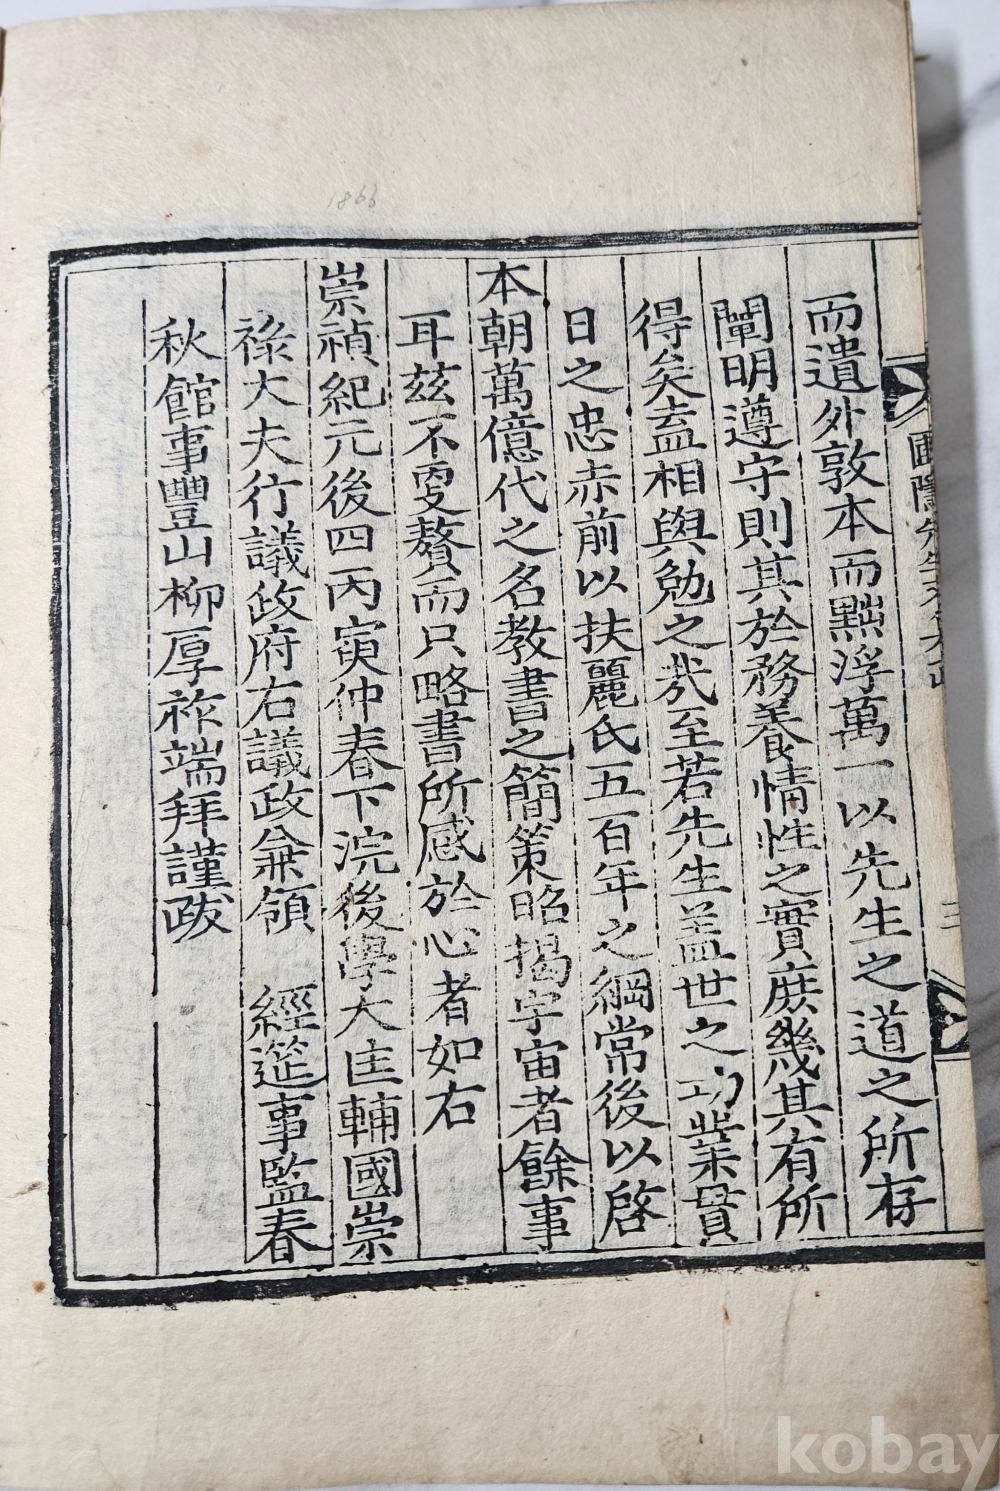 1866
圃隱先生
三
而遺外敦本而黜浮萬一以先生之道之所存
闡明遵守則其於務養情性之實庶幾其有所
得矣盍相與勉之哉至若先生盖世之功業貫
日之忠赤前以扶麗氏五百年之綱常後以啓
本朝萬億代之名教書之簡策昭揭宇宙者餘事
耳茲不更贅而只略書所感於心者如右
崇禎紀元後四丙寅仲春下浣後學大匡輔國崇
祿大夫行議政府右議政兼領 經筵事監春
秋館事豐山柳厚祚端拜謹跋
kobay